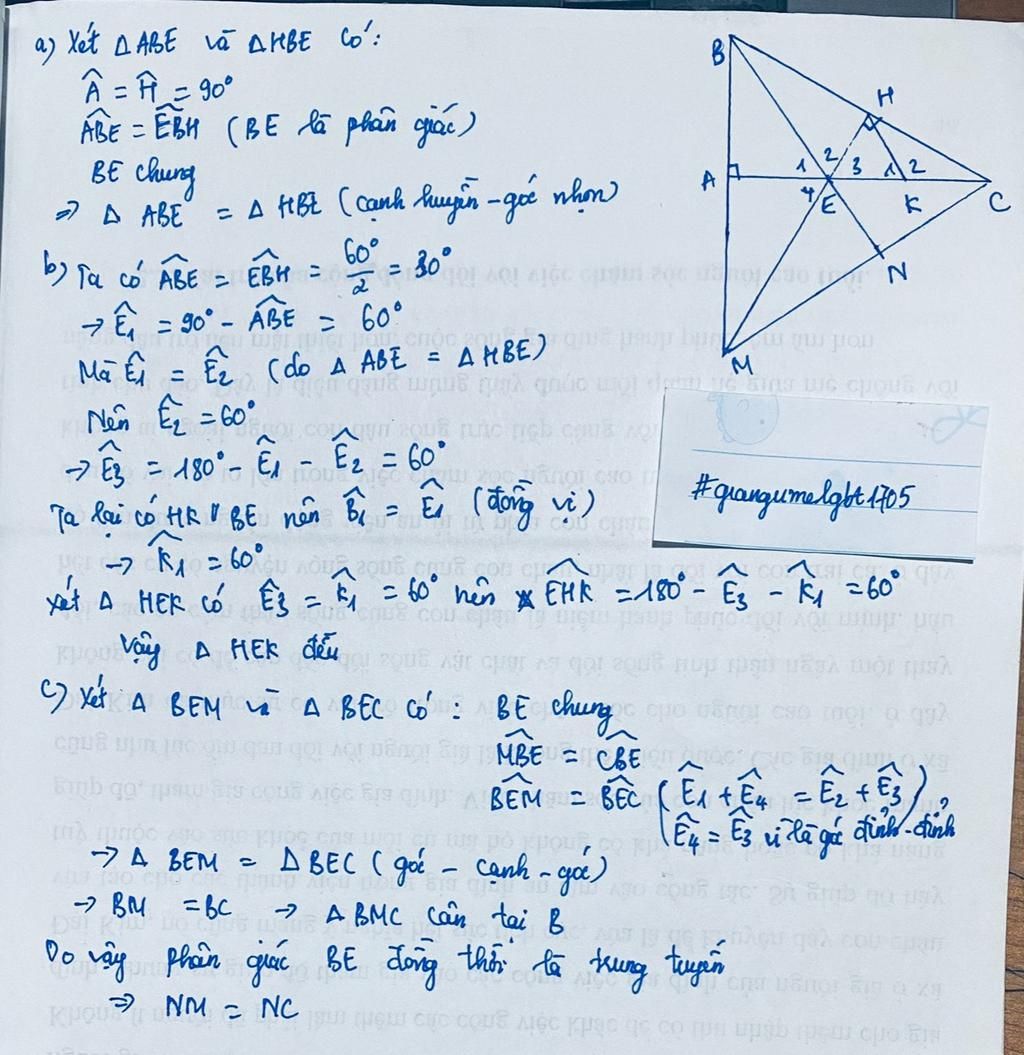 a) Xét Δ ABE và Δ HBE có:
Â = Ĥ = 90°
ABE = EBH (BE là phân giác)
BE chung
⇒ Δ ABE = Δ HBE (cạnh huyền - góc nhọn)
b) Ta có ABE = EBH = 60°/2 = 30°
→ Ê1 = 90° - ABE = 60°
Mà Ê1 = Ê2 (do Δ ABE = Δ HBE)
Nên Ê2 = 60°
→ Ê3 = 180° - Ê1 - Ê2 = 60°
Ta lại có HK // BE nên K̂1 = Ê1 (đồng vị)
→ K̂1 = 60°
Xét Δ HEK có Ê3 = K̂1 = 60° nên EHK = 180° - Ê3 - K̂1 = 60°
Vậy Δ HEK đều
c) Xét Δ BEM và Δ BEC có: BE chung
MBE = CBE
BEM = BEC (Ê1 + Ê4 = Ê2 + Ê3,
Ê4 = Ê3 vì là góc đỉnh - đỉnh)
→ Δ BEM = Δ BEC (góc - cạnh - góc)
→ BM = BC → Δ BMC cân tại B
Do vậy phân giác BE đồng thời là trung tuyến
⇒ NM = NC
B
H
1 2 3 1 2
A
4 E K C
N
M
#grangumelgbt1705